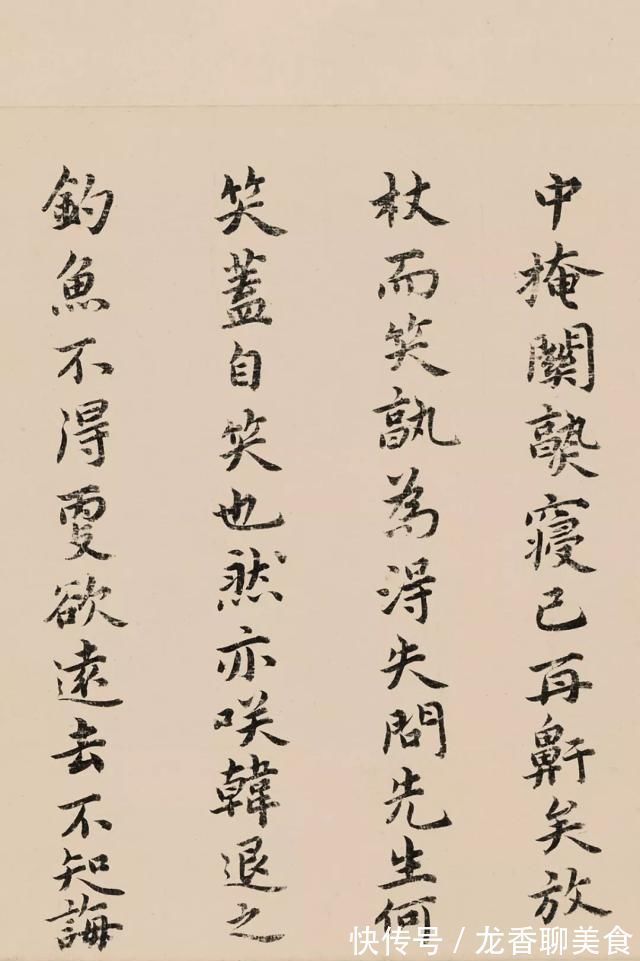 中掩關熟寢已再鼾矣放
杖而笑孰為得失問先生何
笑蓋自笑也然亦咲韓退之
釣魚不得更欲遠去不知誨
快传号／龙香聊美食